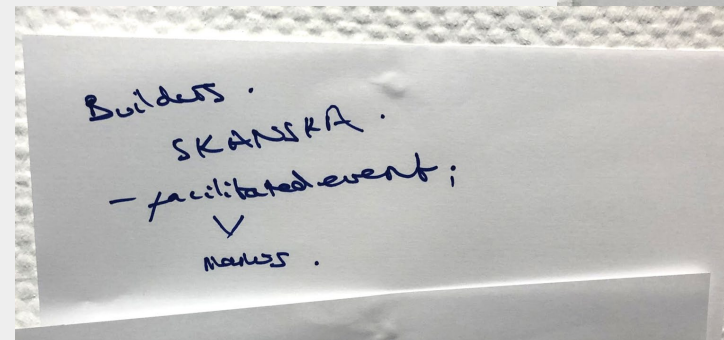 Builders.
SKANSKA.
- facilitated event;